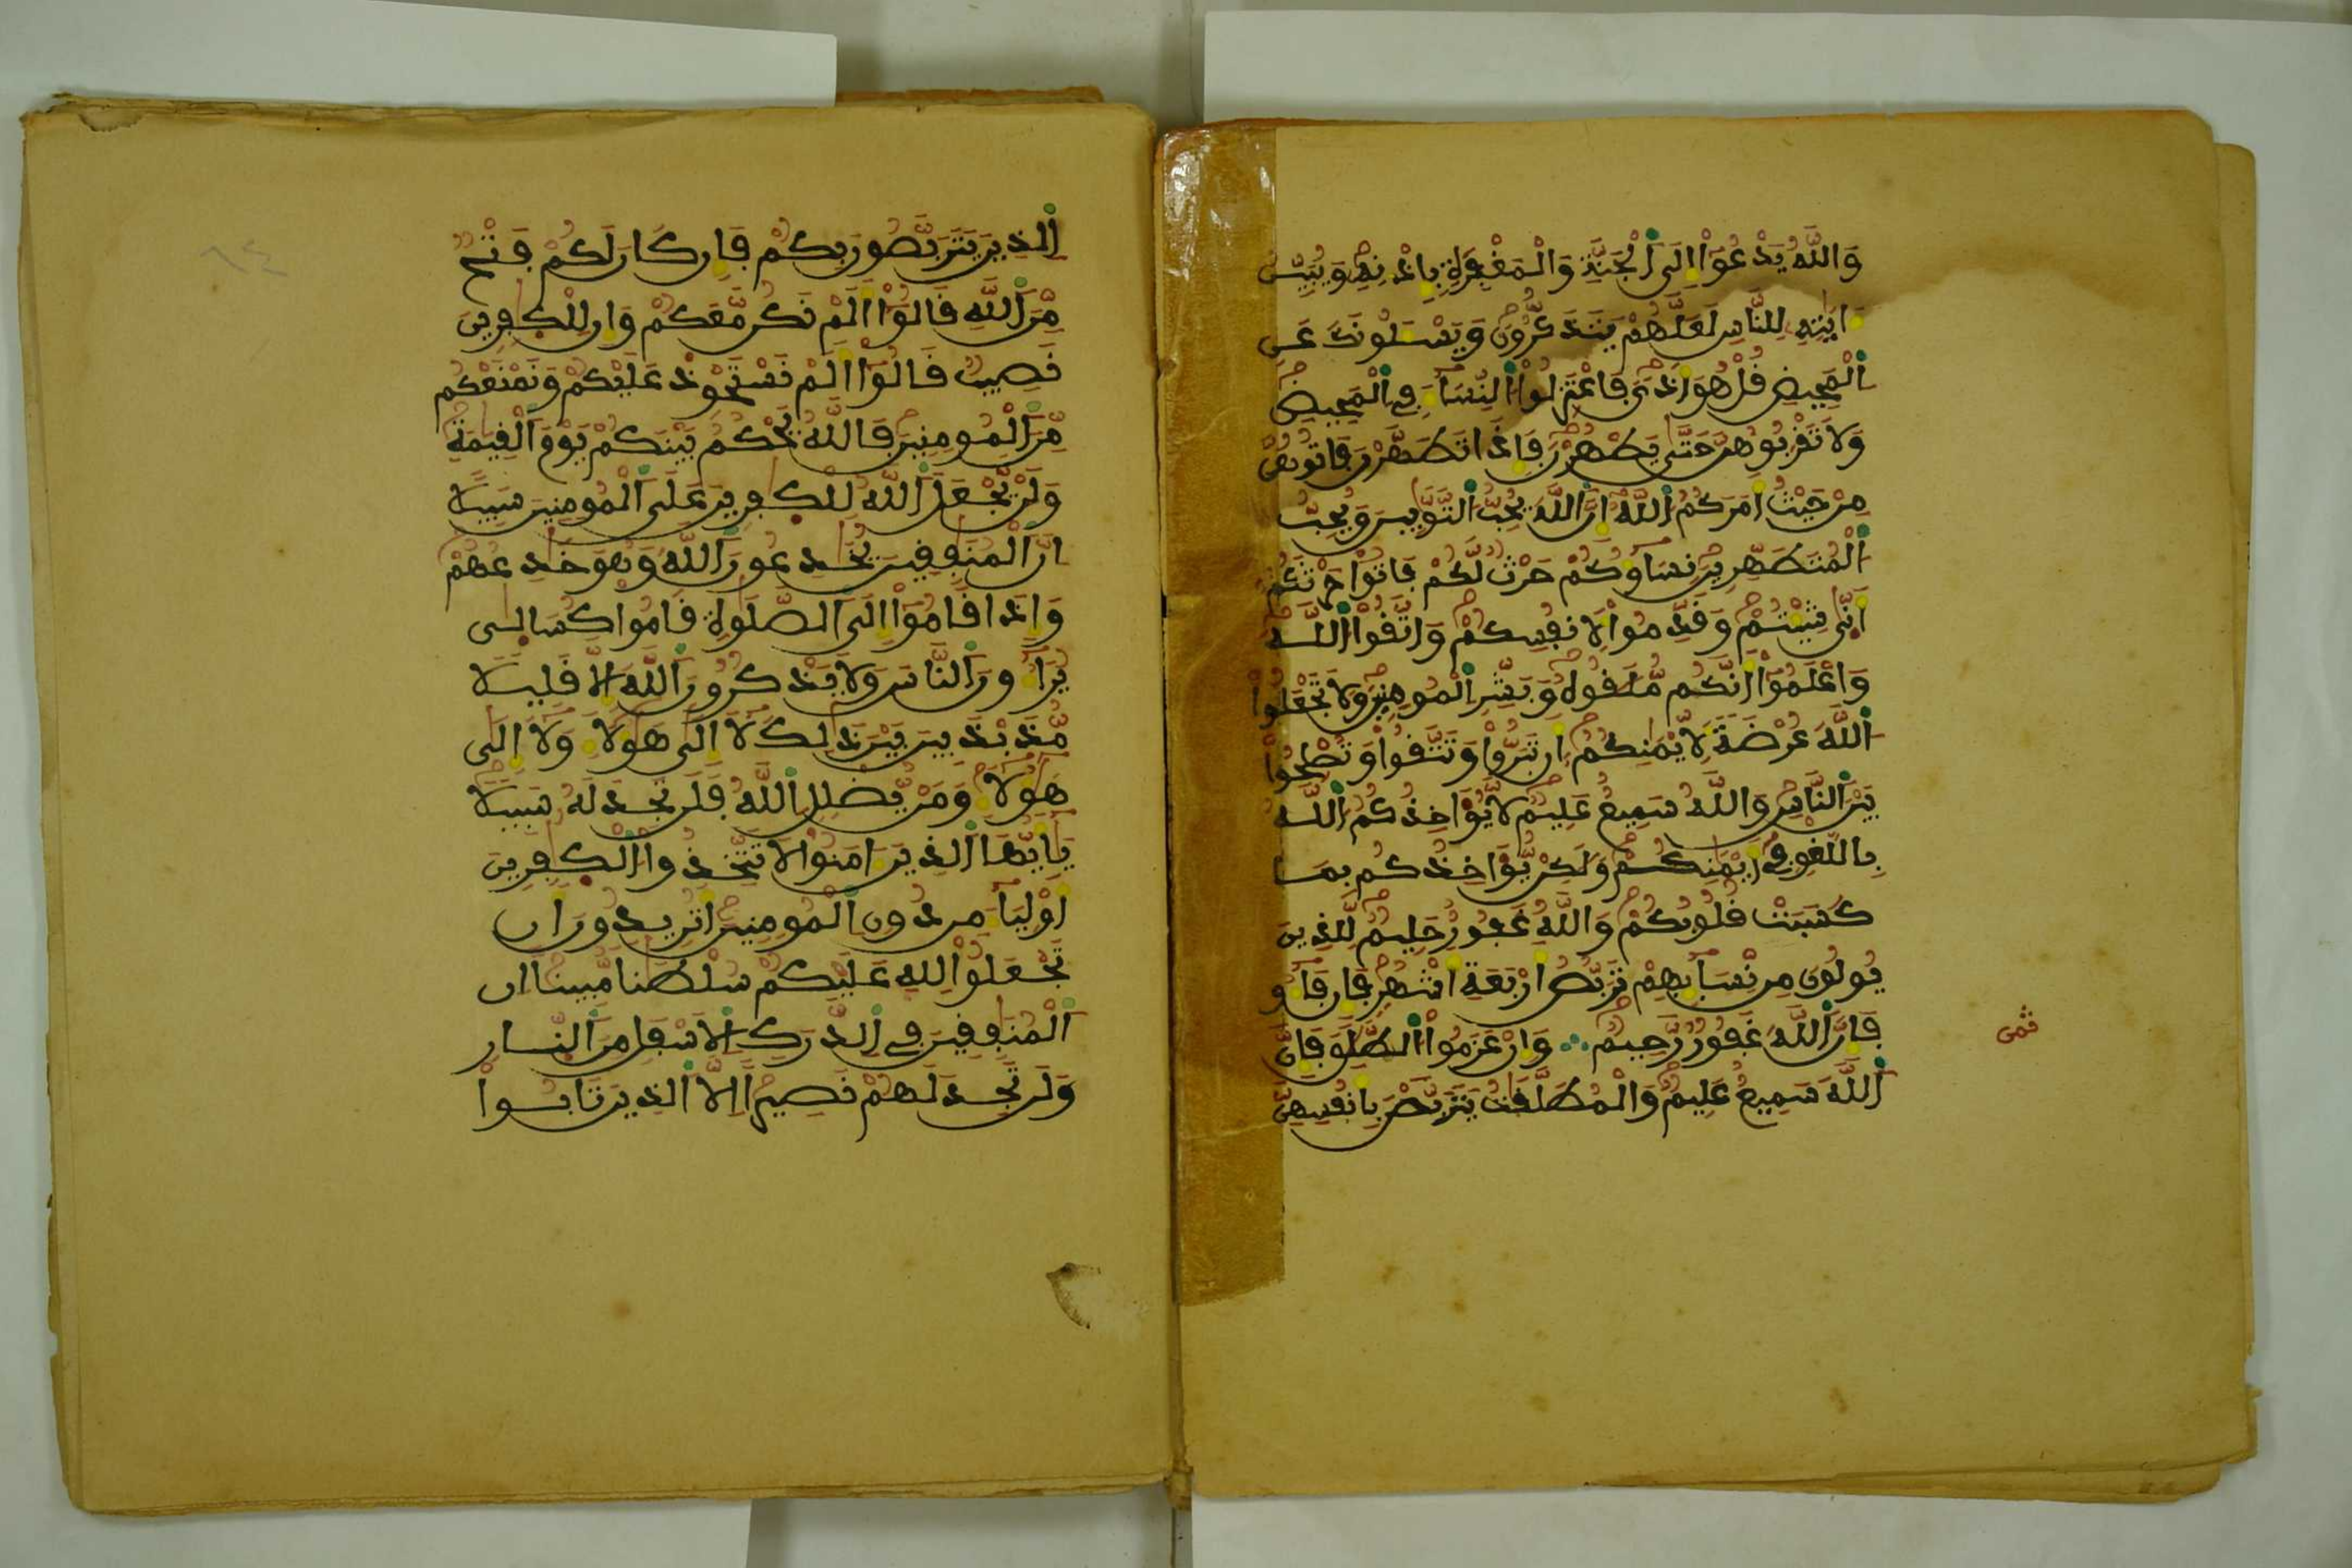 وَاللَّهُ يَدْعُوٓاْ إِلَى اَ۬لْجَنَّةِ وَالْمَغْفِرَةِ بِإِذْنِهِۦ وَيُبَيِّنُ
ءَايَٰتِهِۦ لِلنَّاسِ لَعَلَّهُمْ يَتَذَكَّرُونَ وَيَسْـَٔلُونَكَ عَنِ
اِ۬لْمَحِيضِ قُلْ هُوَ أَذىً فَاعْتَزِلُواْ اُ۬لنِّسَآءَ فِي اِ۬لْمَحِيضِ
وَلَا تَقْرَبُوهُنَّ حَتَّىٰ يَطْهُرْنَ فَإِذَا تَطَهَّرْنَ فَاتُوهُنَّ
مِنْ حَيْثُ أَمَرَكُمُ اُ۬للَّهُ إِنَّ اَ۬للَّهَ يُحِبُّ اُ۬لتَّوَّٰبِينَ وَيُحِبُّ
اُ۬لْمُتَطَهِّرِينَ نِسَآؤُكُمْ حَرْثٌ لَّكُمْ فَاتُواْ حَرْثَكُمْ
أَنَّىٰ شِيتُمْ وَقَدِّمُواْ لِأَنفُسِكُمْ وَاتَّقُواْ اُ۬للَّهَ
وَاعْلَمُوٓاْ أَنَّكُم مُّلَٰقُوهُ وَبَشِّرِ اِ۬لْمُومِنِينَ وَلَا تَجْعَلُواْ
اُ۬للَّهَ عُرْضَةً لِّأَيْمَٰنِكُمُۥٓ أَن تَبَرُّواْ وَتَتَّقُواْ وَتُصْلِحُواْ
بَيْنَ اَ۬لنَّاسِ وَاللَّهُ سَمِيعٌ عَلِيمٌ لَّا يُؤَاخِذُكُمُ اُ۬للَّهُ
بِاللَّغْوِ فِيٓ أَيْمَٰنِكُمْ وَلَٰكِنْ يُّؤَاخِذُكُم بِمَا
كَسَبَتْ قُلُوبُكُمْ وَاللَّهُ غَفُورٌ حَلِيمٌ لِّلَّذِينَ
يُولُونَ مِن نِّسَآئِهِمْ تَرَبُّصُ أَرْبَعَةِ أَشْهُرٍ فَإِن فَآءُو
فَإِنَّ اَ۬للَّهَ غَفُورٌ رَّحِيمٌ وَإِنْ عَزَمُواْ اُ۬لطَّلَٰقَ فَإِنَّ
ثمن
اَ۬للَّهَ سَمِيعٌ عَلِيمٌ وَالْمُطَلَّقَٰتُ يَتَرَبَّصْنَ بِأَنفُسِهِنَّ
٨٤
اِ۬لذِينَ يَتَرَبَّصُونَ بِكُمْ فَإِن كَانَ لَكُمْ فَتْحٌ
مِّنَ اَ۬للَّهِ قَالُوٓاْ أَلَمْ نَكُن مَّعَكُمْ وَإِن لِلْكَٰفِرِينَ
نَصِيبٌ قَالُوٓاْ أَلَمْ نَسْتَحْوِذْ عَلَيْكُمْ وَنَمْنَعْكُم
مِّنَ اَ۬لْمُومِنِينَ فَاللَّهُ يَحْكُمُ بَيْنَكُمْ يَوْمَ اَ۬لْقِيَٰمَةِ
وَلَنْ يَّجْعَلَ اَ۬للَّهُ لِلْكَٰفِرِينَ عَلَى اَ۬لْمُومِنِينَ سَبِيلًا
اِنَّ اَ۬لْمُنَٰفِقِينَ يُخَٰدِعُونَ اَ۬للَّهَ وَهْوَ خَٰدِعُهُمْ
وَإِذَا قَامُوٓاْ إِلَى اَ۬لصَّلَوٰةِ قَامُواْ كُسَالَىٰ
يُرَآءُونَ اَ۬لنَّاسَ وَلَا يَذْكُرُونَ اَ۬للَّهَ إِلَّا قَلِيلًا
مُّذَبْذَبِينَ بَيْنَ ذَٰلِكَ لَآ إِلَىٰ هَٰٓؤُلَآءِ وَلَآ إِلَىٰ
هَٰٓؤُلَآءِ وَمَنْ يُّضْلِلِ اِ۬للَّهُ فَلَن تَجِدَ لَهُۥ سَبِيلًا
يَٰٓأَيُّهَا اَ۬لذِينَ ءَامَنُواْ لَا تَتَّخِذُواْ اُ۬لْكَٰفِرِينَ
أَوْلِيَآءَ مِن دُونِ اِ۬لْمُومِنِينَ أَتُرِيدُونَ أَن
تَجْعَلُواْ لِلهِ عَلَيْكُمْ سُلْطَٰناً مُّبِيناً اِنَّ
اَ۬لْمُنَٰفِقِينَ فِي اِ۬لدَّرَكِ اِ۬لْأَسْفَلِ مِنَ اَ۬لنَّارِ
وَلَن تَجِدَ لَهُمْ نَصِيراً اِلَّا اَ۬لذِينَ تَابُواْ